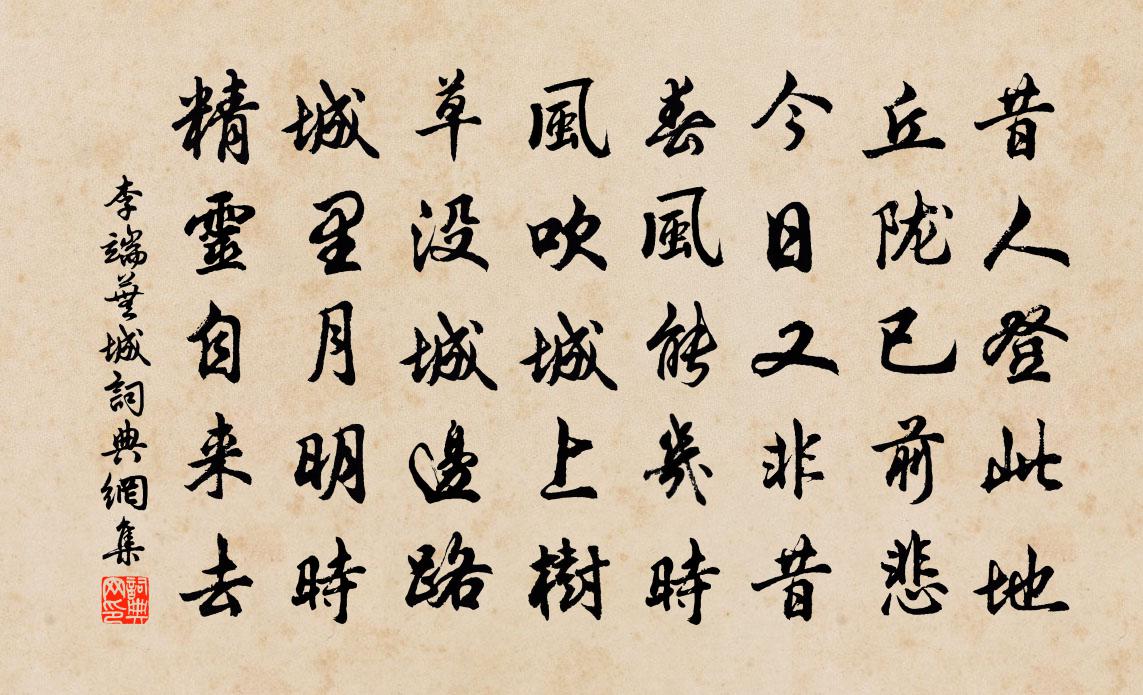 昔人登此地
丘陇已前悲
今日又非昔
春風能幾時
風吹城上樹
草没城邊路
城里月明時
精靈自来去
李端蕪城詞典網集
詞典网印